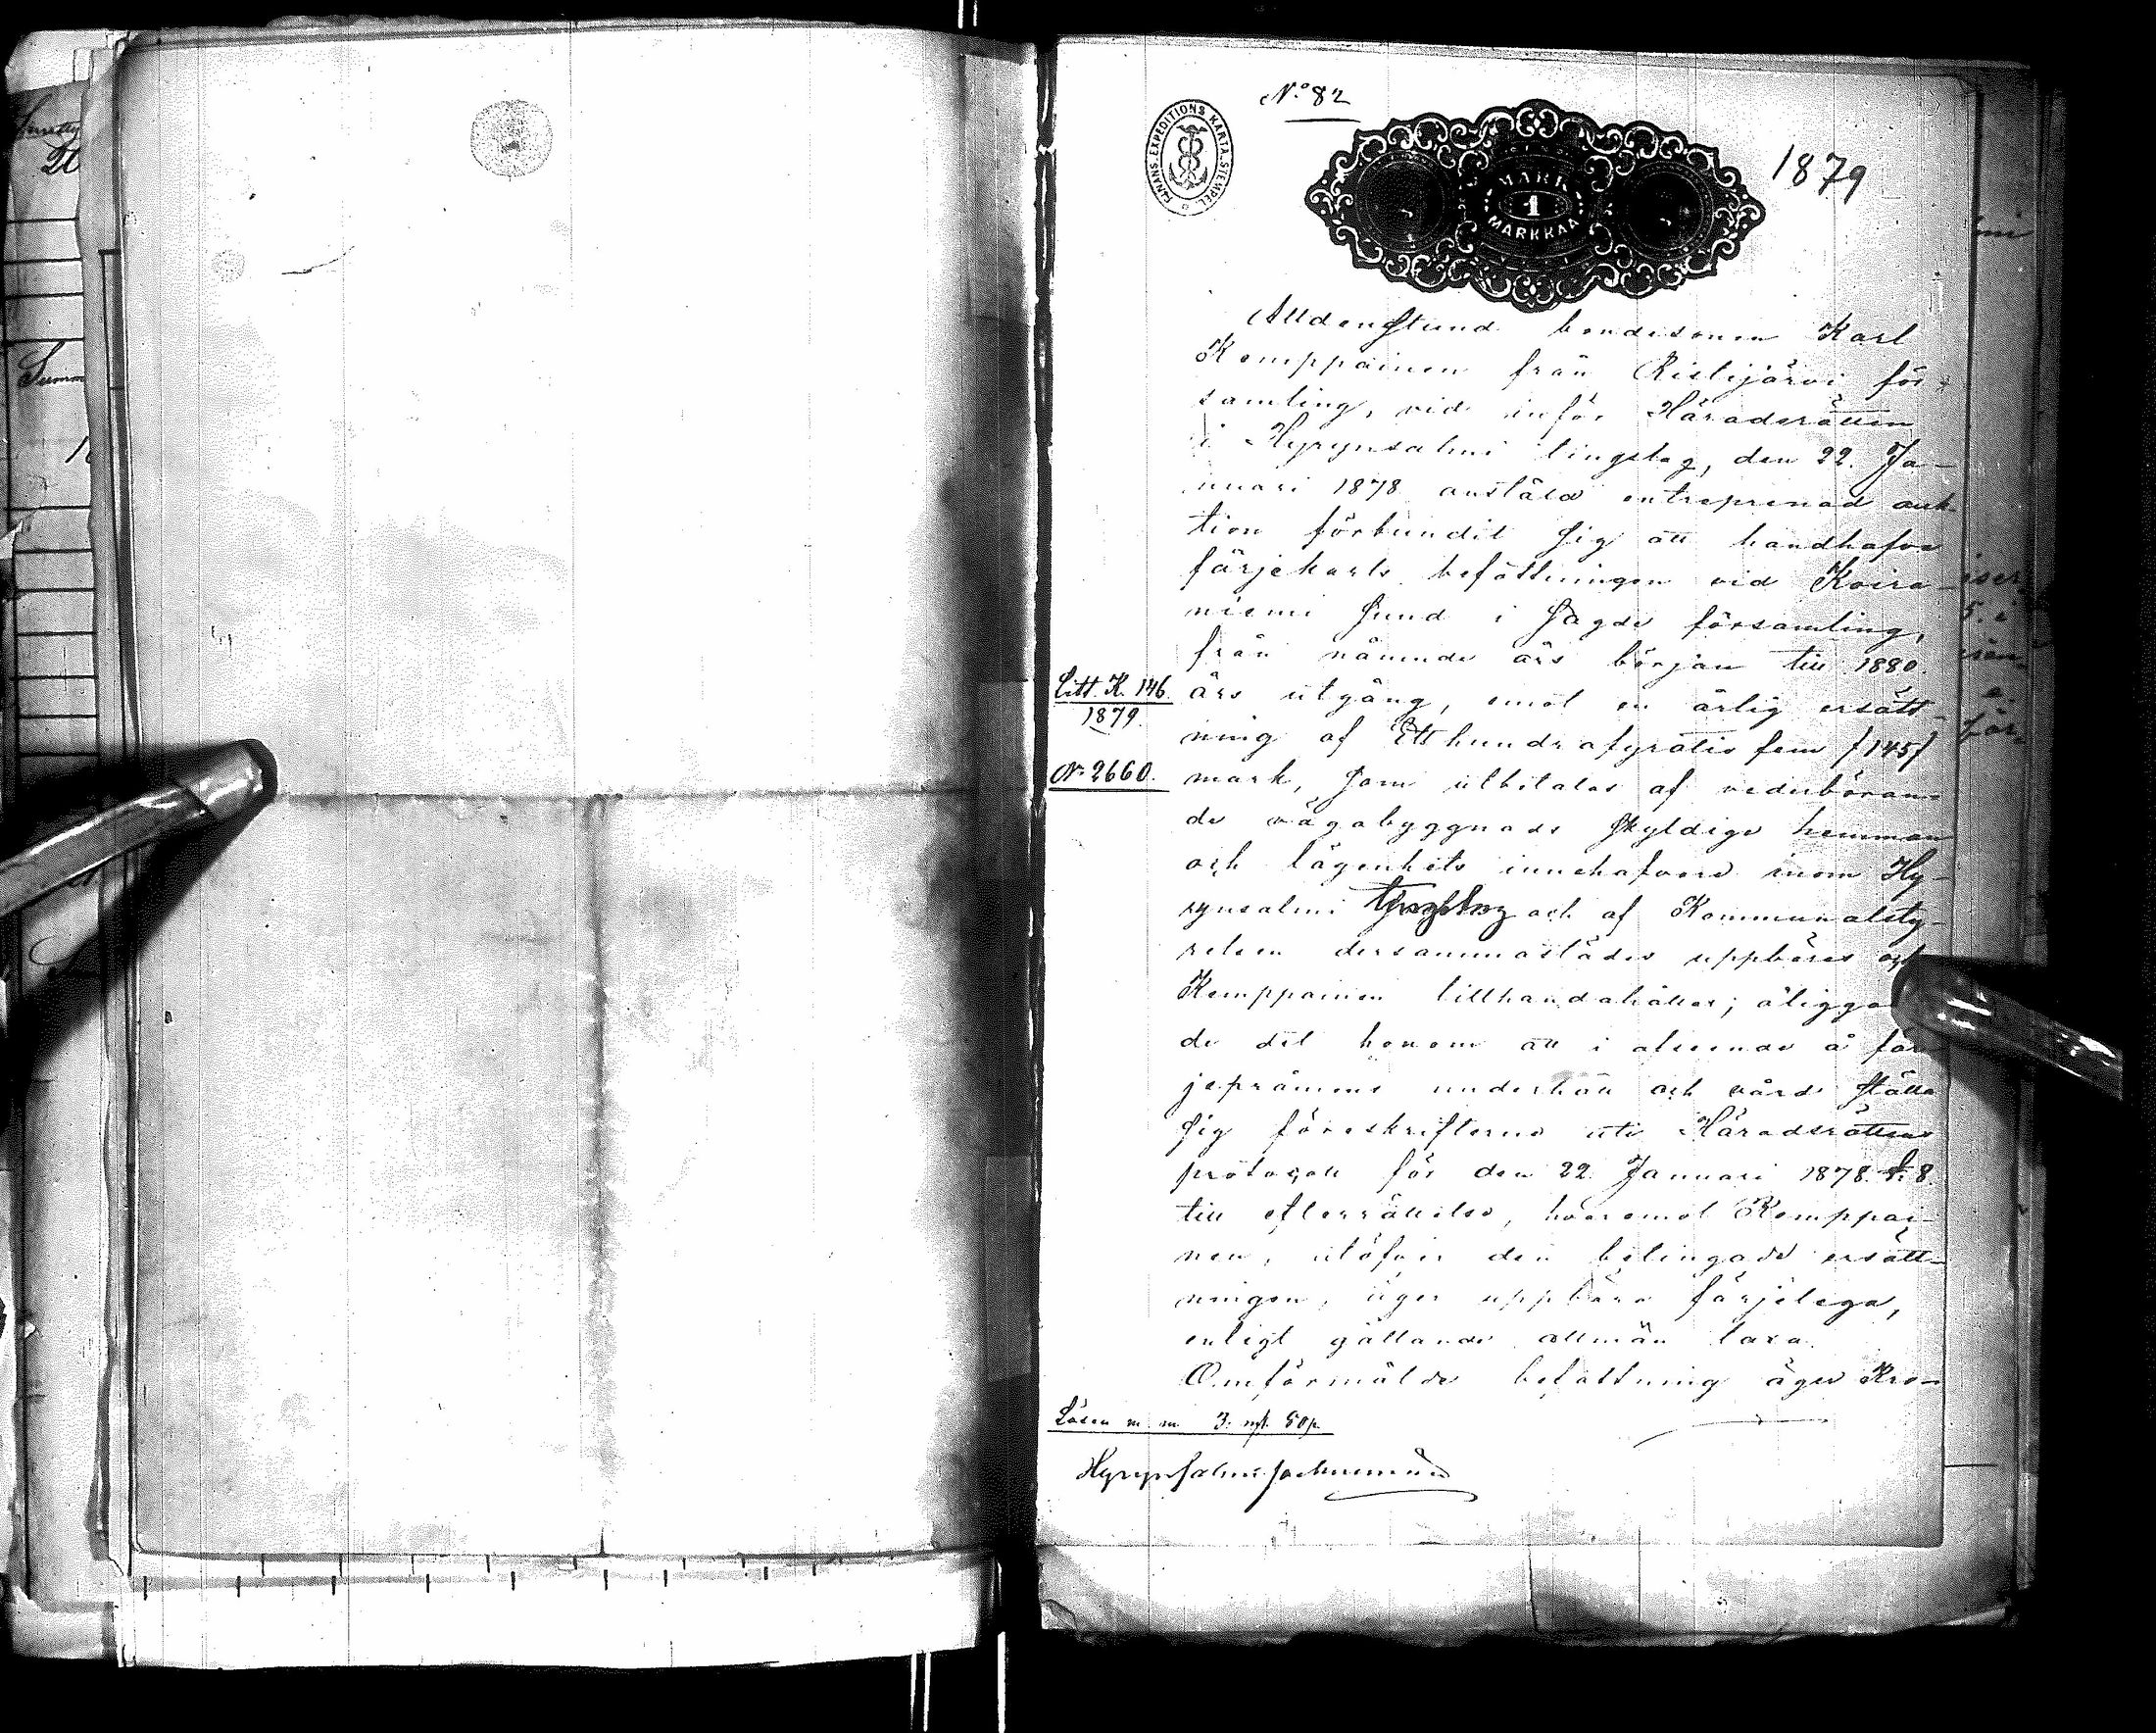 No 82
FINANS. EXPEDITIONS KARTA. STEMPEL
MARK
1
MARKKAA
1879
Alldenstund bondesonen Karl
Kemppainen från Ristijärvi för-
samling, vid inför Häradsrätten
i Hyrynsalmi tingslag, den 22. Ja-
nuari 1878 anstäld entreprenad auk-
tion förbundit sig att handhafva
färjekarls befattningen vid Koira-
niemi sund i sagde församling,
från nämnde års början till 1880.
Litt. K. 146.
1879.
års utgång, emot en årlig ersätt-
ning af Ett hundrafyratio fem /145/
No 2660.
mark, som utbetalas af vederböran-
de vägabyggnads skyldige hemman
och lägenhets innehafvare inom Hy-
rynsalmi tingslag och af Kommunalsty-
relsen dersammastädes uppbäres och
Kemppainen tillhandahålles; åliggan
de det honom att i afseende å fär
jeprämens underhåll och vård ställa
sig föreskrifterna uti Häradsrättens
protocoll för den 22 Januari 1878. § 8.
till efterrättelse, hvaremot Kemppai-
nen, utöfver den betingade ersätt-
ningen, äger uppbära färjelega,
enligt gällande allmän taxa.
Omförmälde befattning äger Kro-
Lösen m. m. 3. mk. 50 p.
Hyrynsalmi